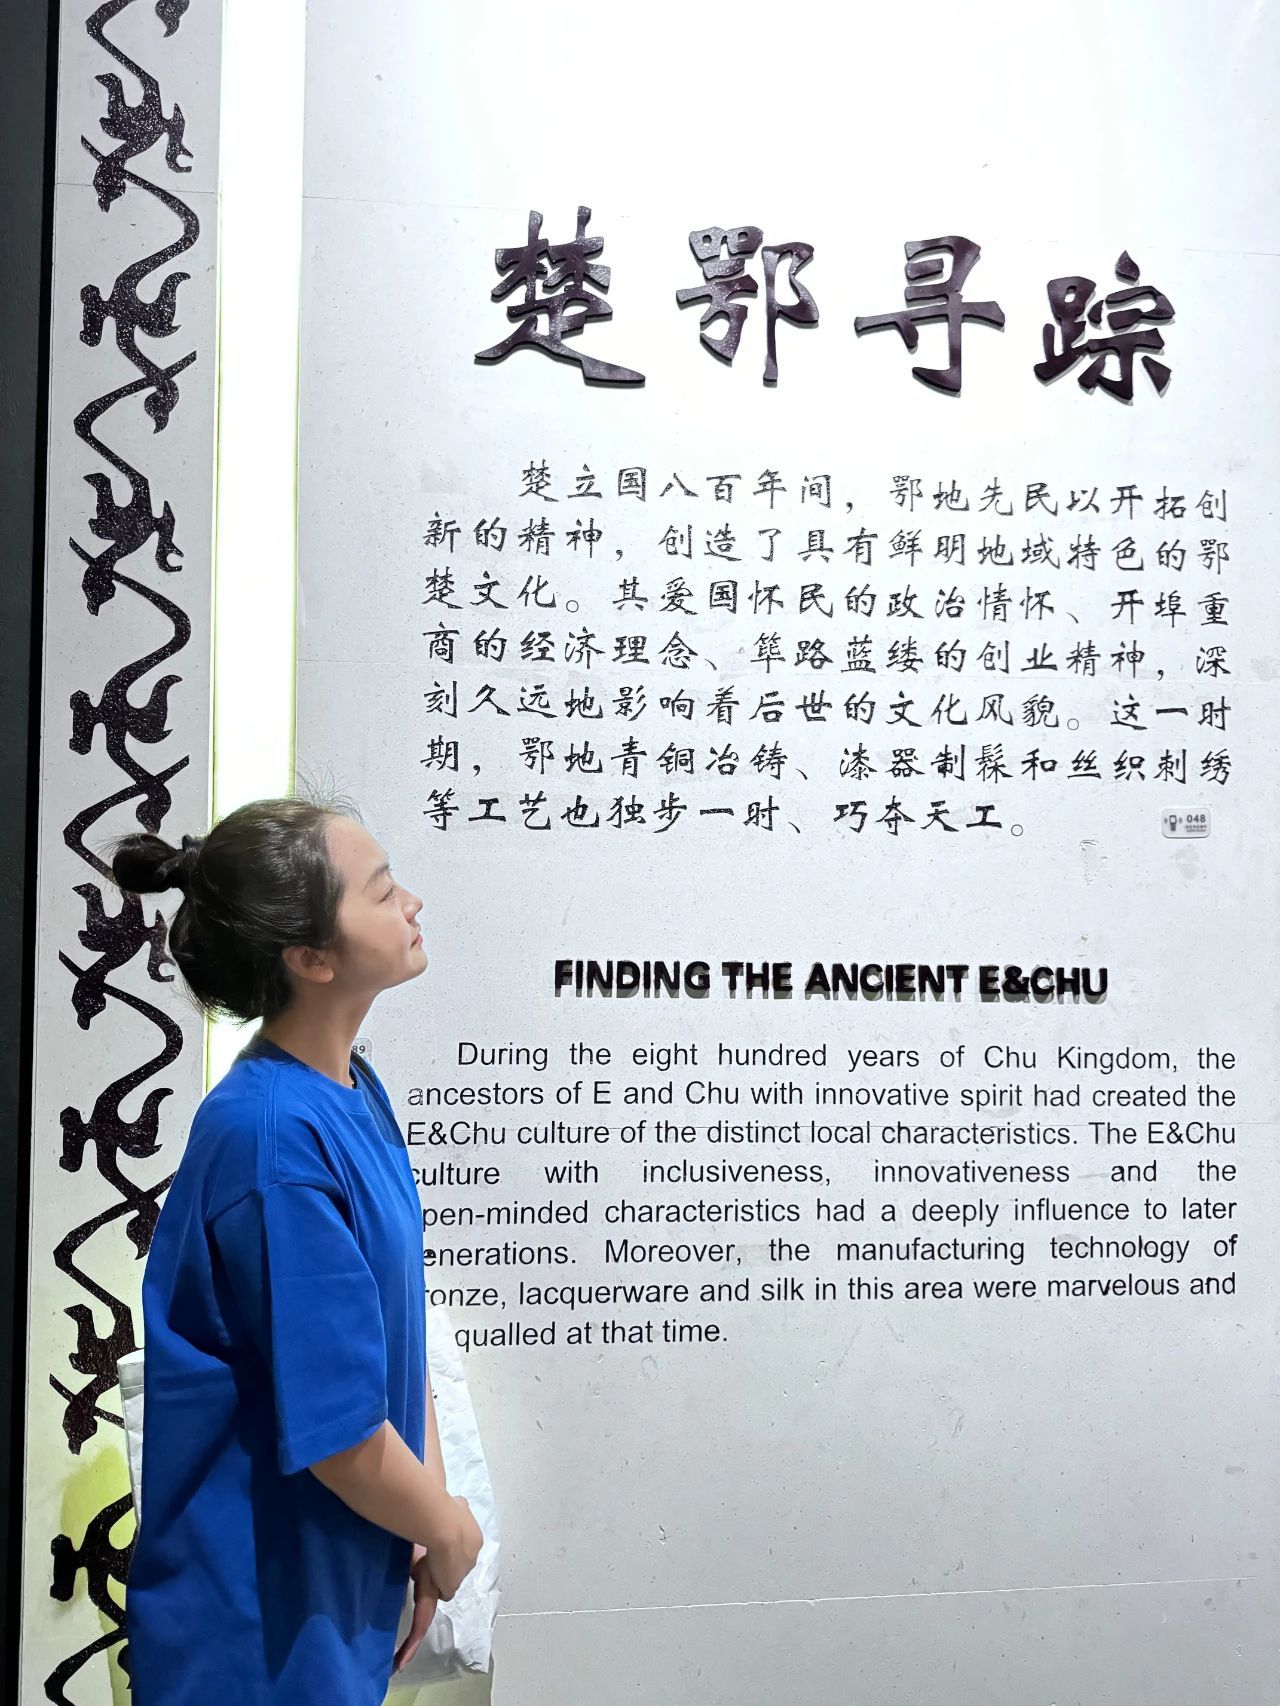 楚鄂寻踪
楚立国八百年间，鄂地先民以开拓创
新的精神，创造了具有鲜明地域特色的鄂
楚文化。其爱国怀民的政治情怀、开埠重
商的经济理念、筚路蓝缕的创业精神，深
刻久远地影响着后世的文化风貌。这一时
期，鄂地青铜冶铸、漆器制髹和丝织刺绣
等工艺也独步一时、巧夺天工。
048
FINDING THE ANCIENT E&CHU
89
During the eight hundred years of Chu Kingdom, the
ancestors of E and Chu with innovative spirit had created the
E&Chu culture of the distinct local characteristics. The E&Chu
culture with inclusiveness, innovativeness and the
pen-minded characteristics had a deeply influence to later
enerations. Moreover, the manufacturing technology of
ronze, lacquerware and silk in this area were marvelous and
qualled at that time.